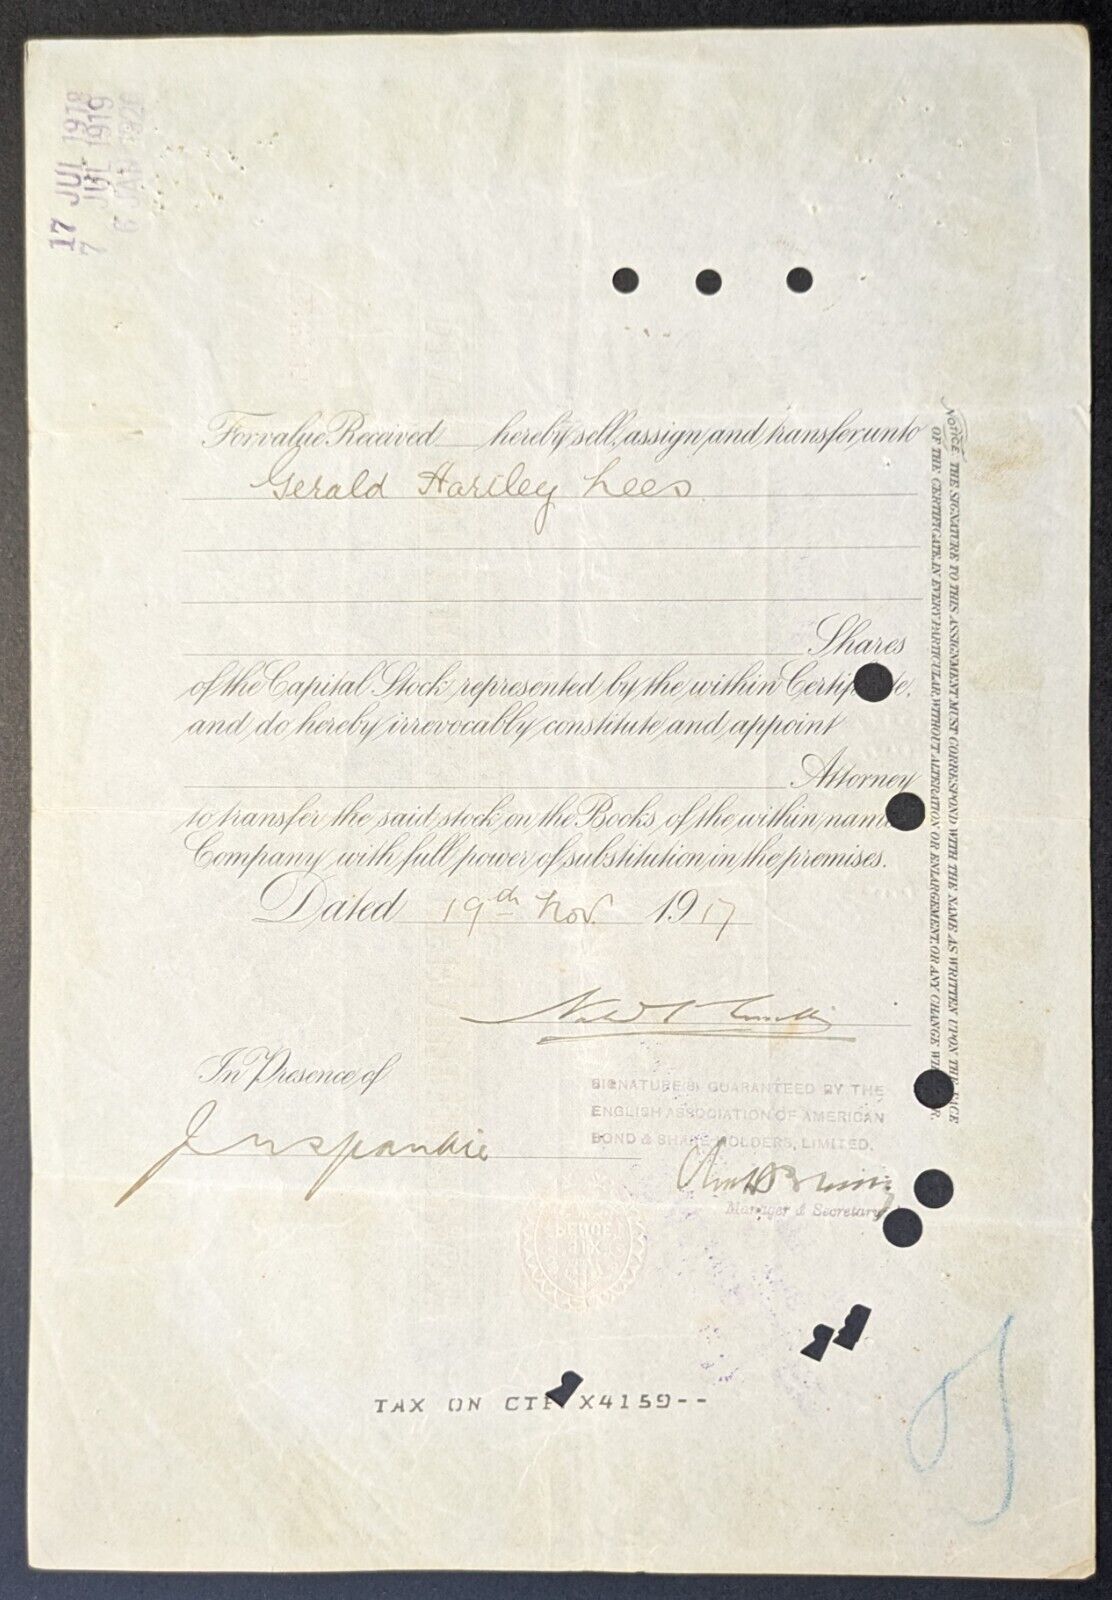 17 JUL 1918
7 JUL 1919
6 JAN 1920
For value Received hereby sell, assign and transfer unto
Gerald Hartley Lees
Shares
of the Capital Stock represented by the within Certif e,
and do hereby irrevocably constitute and appoint
Attorney
to transfer the said stock on the Books of the within nam
Company with full power of substitution in the premises.
Dated 19th Nov. 1917
In Presence of
SIGNATURE(S) GUARANTEED BY THE
ENGLISH ASSOCIATION OF AMERICAN
BOND & SHARE HOLDERS, LIMITED.
Manager & Secretary
PENCE
SIX
TAX ON CTF X4159--
NOTICE. THE SIGNATURE TO THIS ASSIGNMENT MUST CORRESPOND WITH THE NAME AS WRITTEN UPON THE FACE
OF THE CERTIFICATE, IN EVERY PARTICULAR, WITHOUT ALTERATION OR ENLARGEMENT, OR ANY CHANGE WH R.